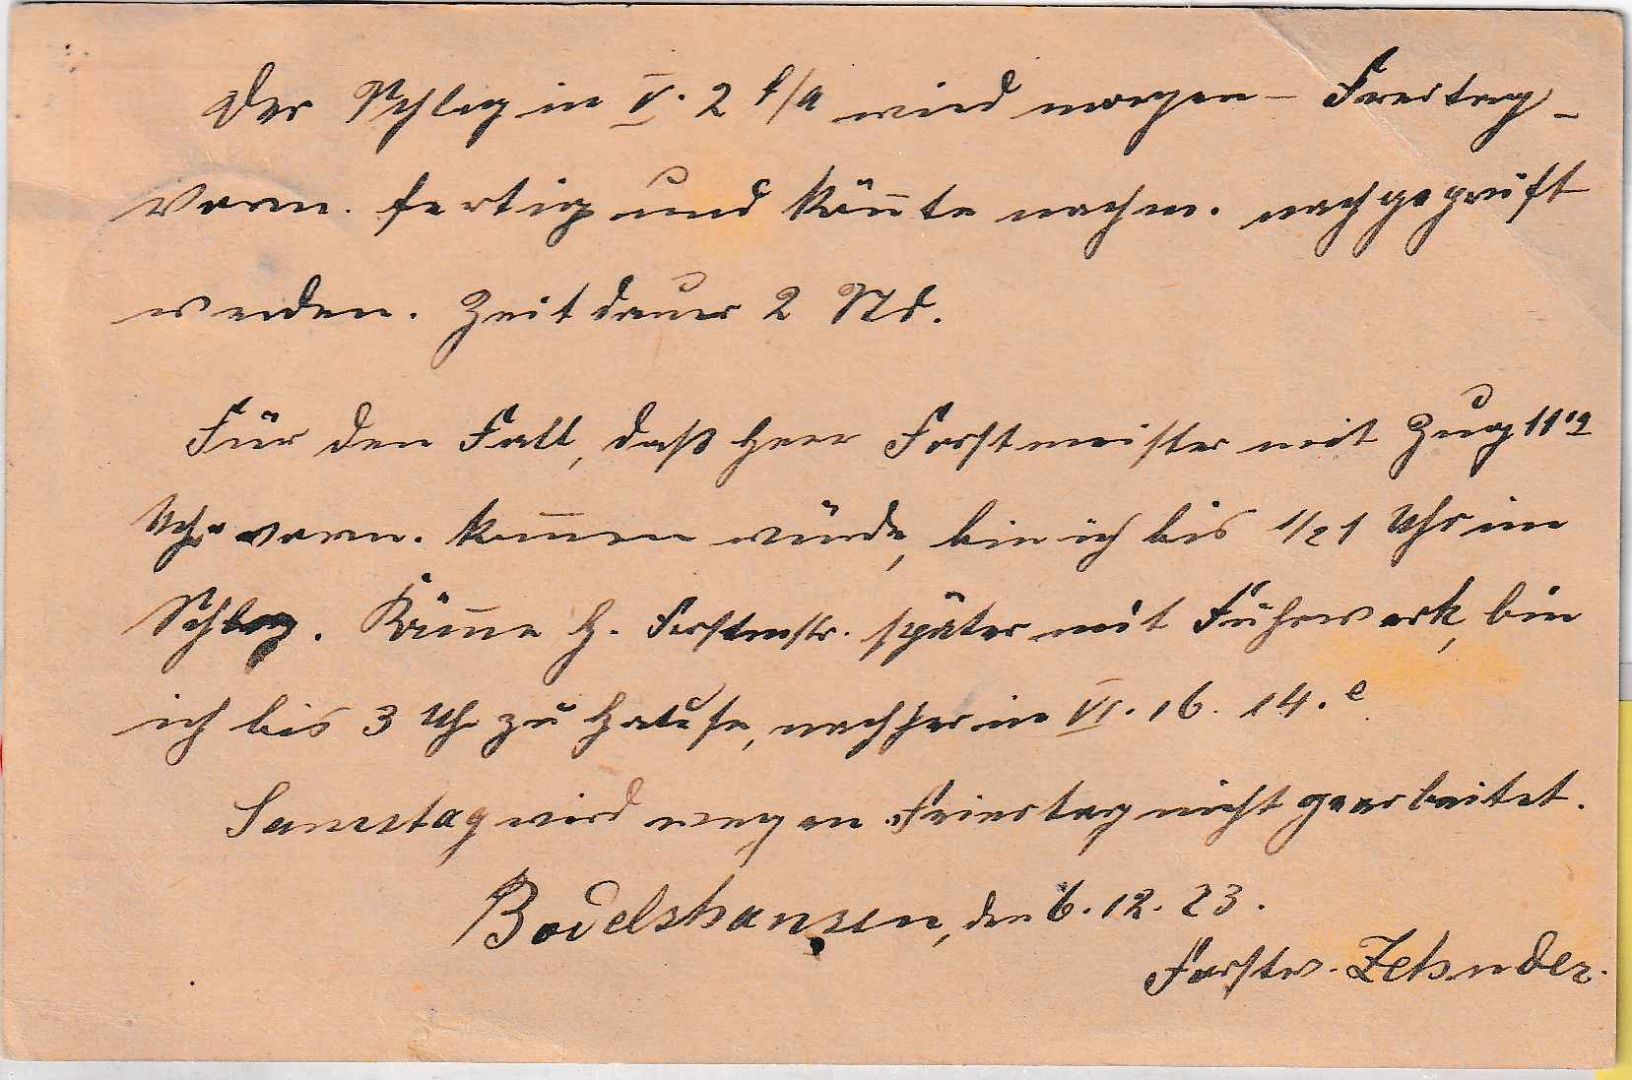 Der Schlag in V. 2 f/a wird morgen - Freitag -
Vorm. fertig und kön̄te nachm. nachgeprüft
werden. Zeitdauer 2 Std.
Für den Fall, daß Herr Forstmeister mit Zug 11¹²
Uhr vorm. kom̄en würde, bin ich bis 1/2 1 Uhr im
Schlag. Käm̄e H. Forstmstr. später mit Fuhrwerk, bin
ich bis 3 Uhr zu Hause, nachher in VI. 16. 14.e
Samstag wird wegen Feiertag nicht gearbeitet.
Bodelshausen, den 6. 12. 23.
Forstw. Zehnder.